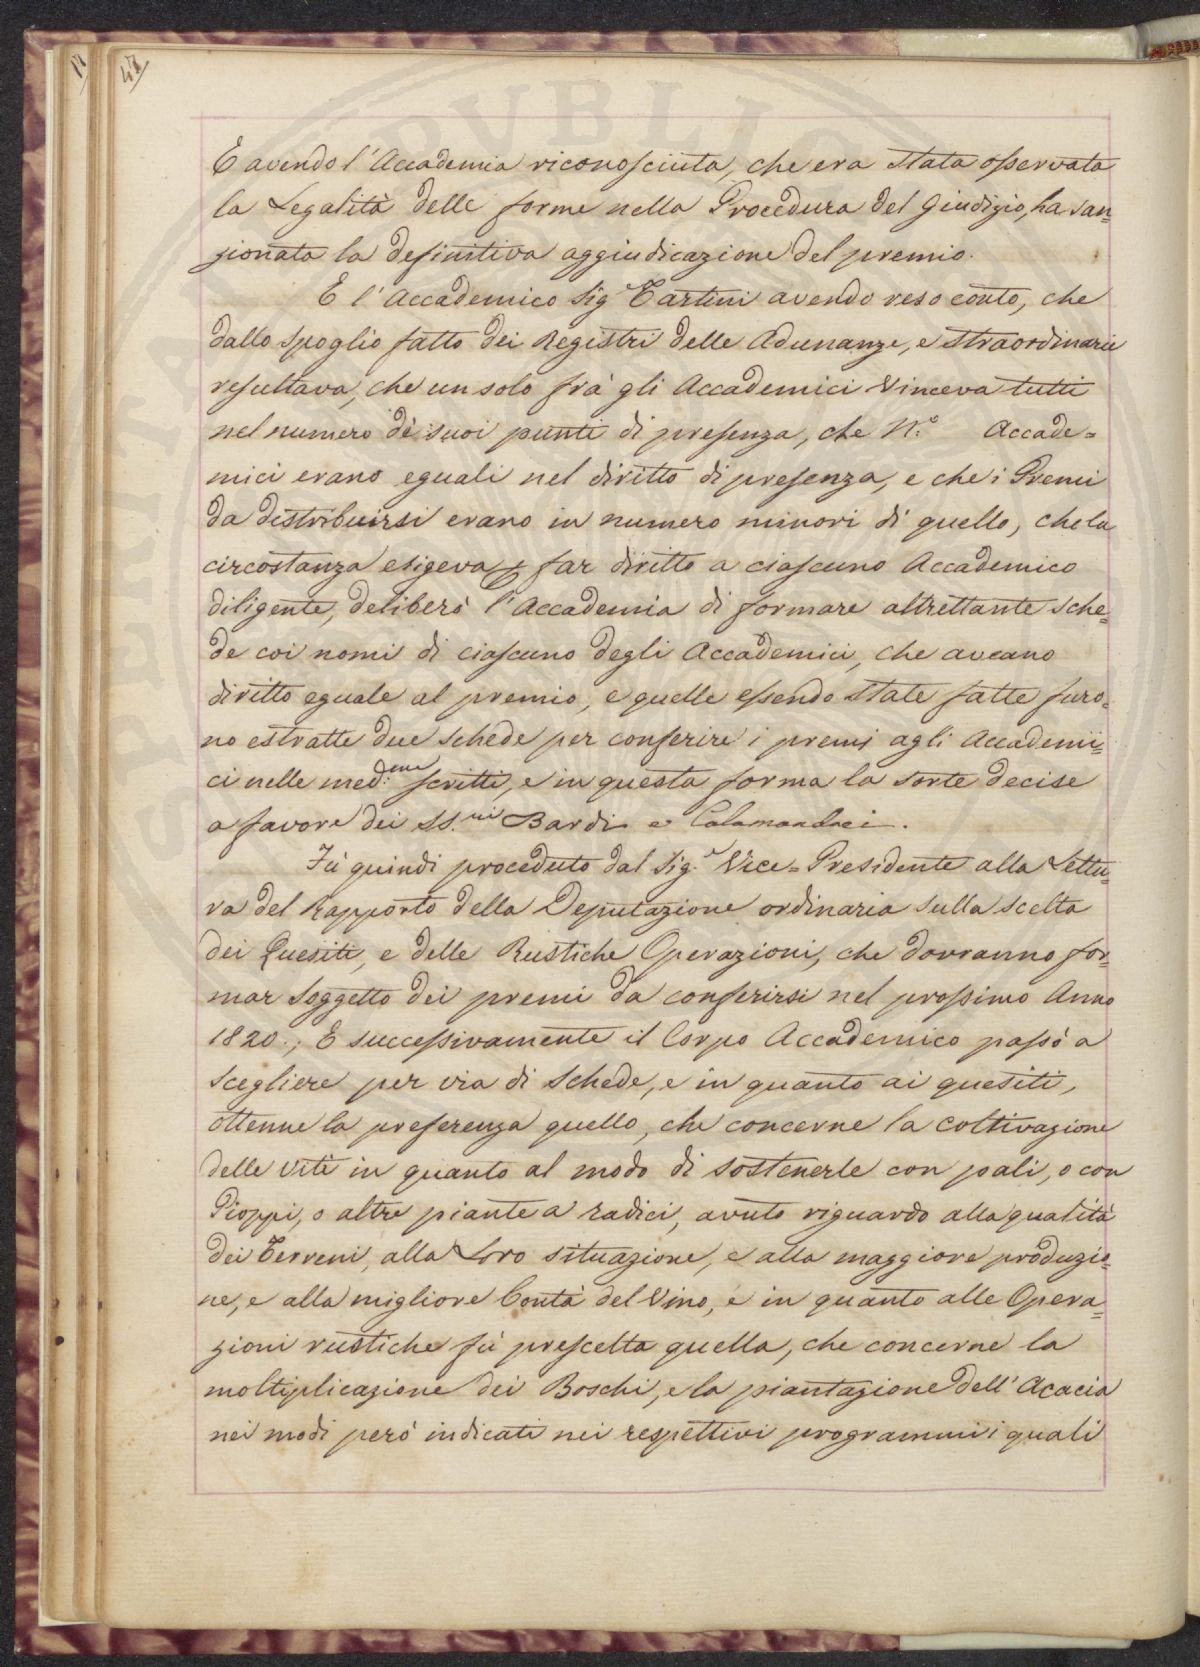 48
E avendo l'Accademia riconosciuta, che era stata osservata
la Legalità delle forme nella Procedura del Giudizio, ha san=
zionata la definitiva aggiudicazione del premio.
E l'Accademico Sig.r Tartini avendo reso conto, che
dallo spoglio fatto dei Registri delle Adunanze, e straordinarie
resultava, che un solo frà gli Accademici vinceva tutti
nel numero dè suoi punti di presenza, che N.o Accade=
mici erano eguali nel diritto di presenza, e che i Premi
da distribuirsi erano in numero minori di quello, che la
circostanza esigeva p far diritto a ciascuno Accademico
diligente, deliberò l'Accademia di formare altrettante sche=
de coi nomi di ciascuno degli Accademici, che aveano
diritto eguale al premio, e quelle essendo state fatte furo=
no estratte due schede per conferire i premj agli Accademi=
ci nelle med:me scritti, e in questa forma la sorte decise
a favore dei SS.ri Bardi e Calamandrei.
Fù quindi proceduto dal Sig.r Vice=Presidente alla Lettu=
ra del Rapporto della Deputazione ordinaria sulla scelta
dei Quesiti, e delle Rustiche Operazioni, che dovranno for=
mar Soggetto dei premi da conferirsi nel prossimo Anno
1820.; E successivamente il Corpo Accademico passò a
scegliere per via di schede, e in quanto ai quesiti,
ottenne la preferenza quello, che concerne la coltivazione
delle viti in quanto al modo di sostenerle con pali, o con
Pioppi, o altre piante a radici, avuto riguardo alla qualità
dei Terreni, alla Loro situazione, e alla maggiore produzio=
ne, e alla migliore bontà del Vino, e in quanto alle Opera=
zioni rustiche fù prescelta quella, che concerne la
moltiplicazione dei Boschi, e la piantazione dell'Acacia
nei modi però indicati nei respettivi programmi i quali